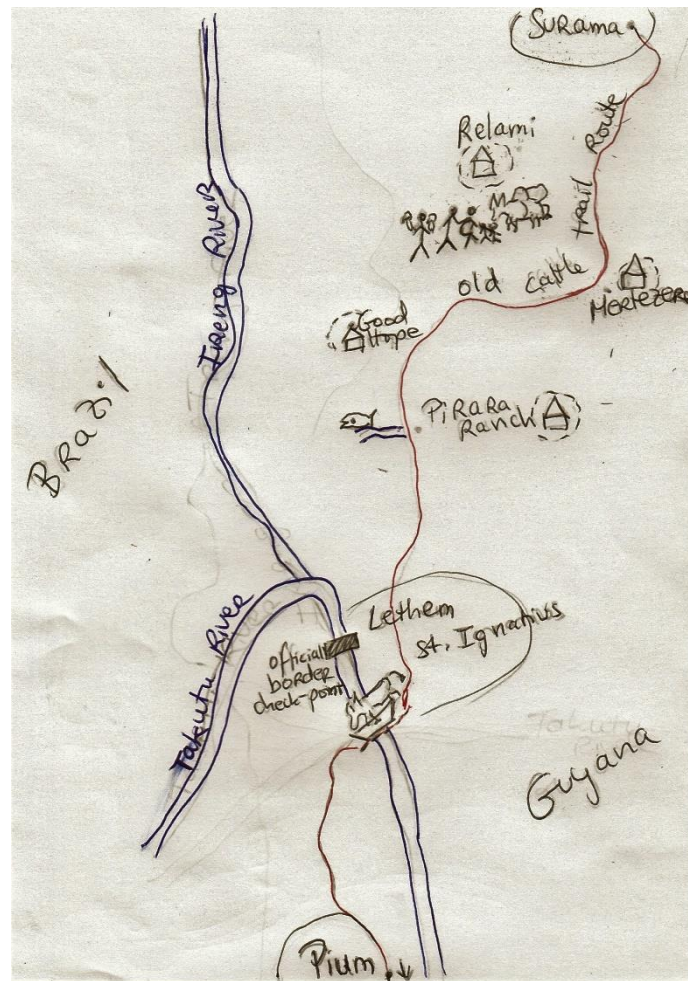 Surama
Relami
old cattle trail Route
Mortezero
Good
Hope
PiRARA
RANCH
Ireng River
Brazil
Takutu River
Lethem
St. Ignatius
official
border
check-point
Takutu
Guyana
Pium